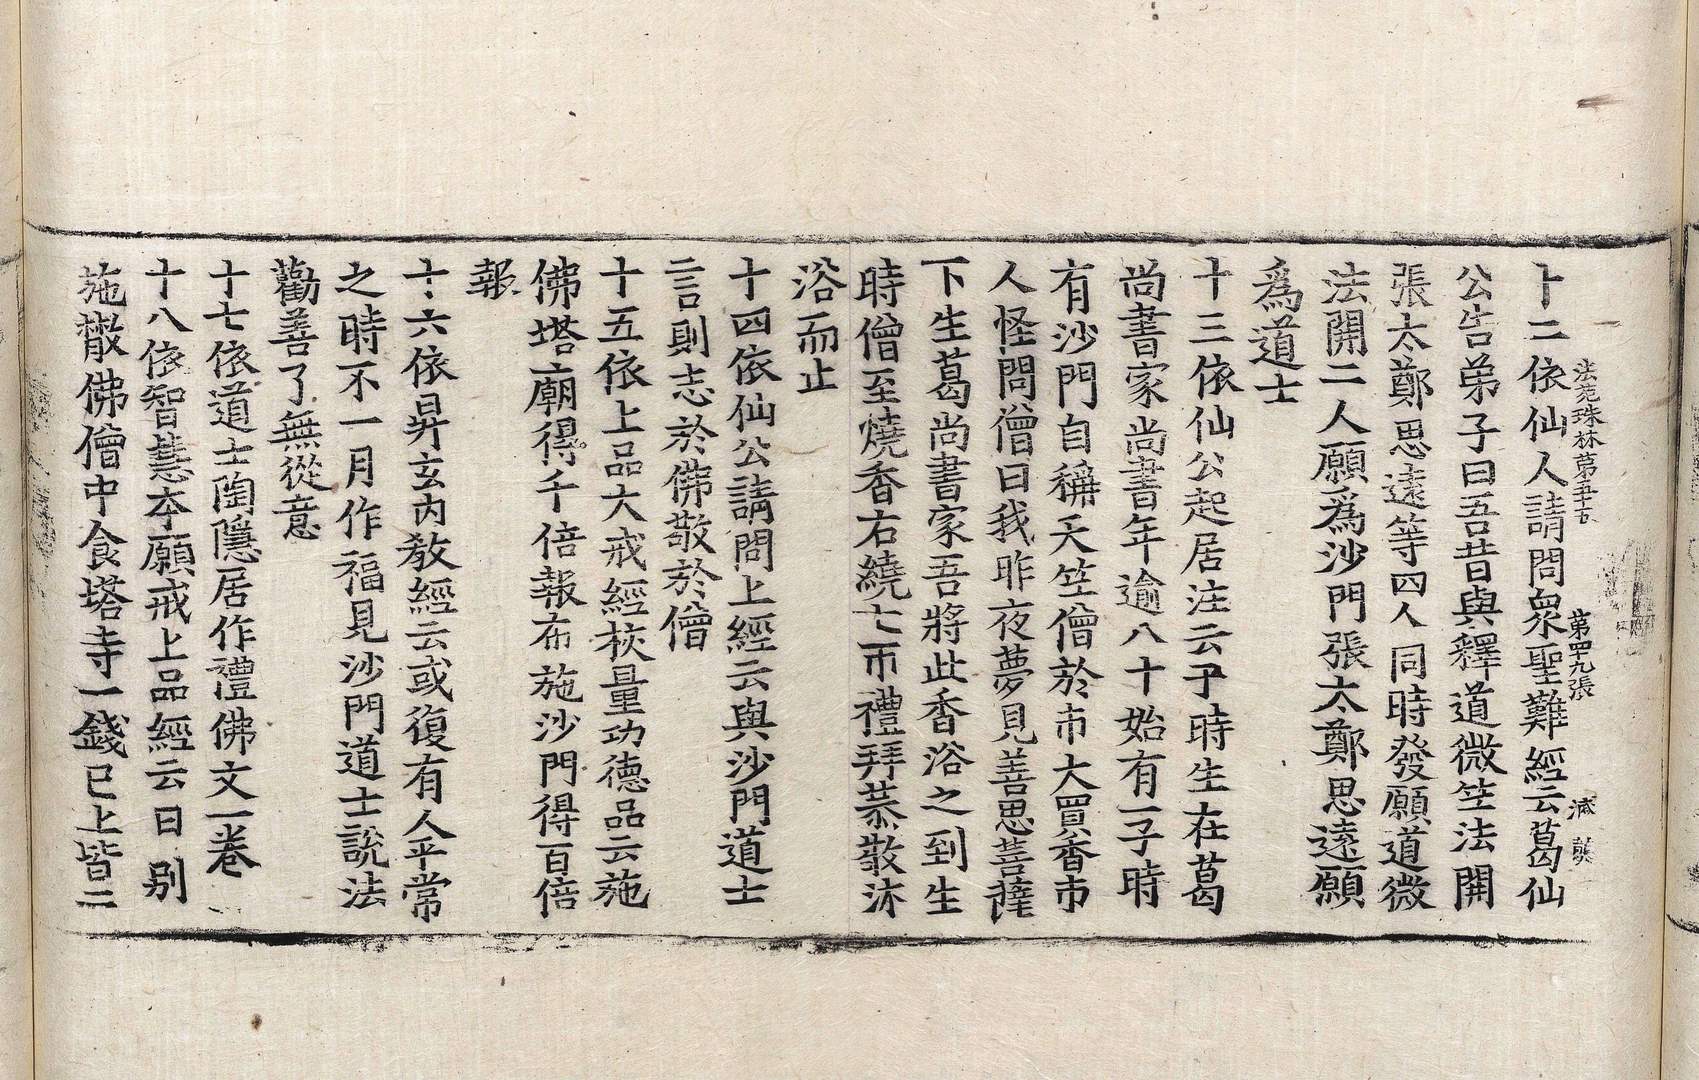 法苑珠林第五十五 第四九張 㓕 龔
十二依仙人請問衆聖難經云葛仙
公告弟子曰吾昔與釋道微笁法開
張太鄭思遠等四人同時發願道微
法開二人願爲沙門張太鄭思遠願
爲道士
十三依仙公起居注云于時生在葛
尚書家尚書年逾八十始有一子時
有沙門自稱天笁僧於市大買香市
人怪問僧曰我昨夜夢見善思菩薩
下生葛尚書家吾將此香浴之到生
時僧至燒香右繞七帀禮拜恭敬沐
浴而止
十四依仙公請問上經云與沙門道士
言則志於佛敬於僧
十五依上品大戒經校量功德品云施
佛塔廟得千倍報布施沙門得百倍
報
十六依昇玄內教經云或復有人平常
之時不一月作福見沙門道士說法
勸善了無從意
十七依道士陶隱居作禮佛文一卷
十八依智慧本願戒上品經云曰別
施散佛僧中食塔寺一錢已上皆二